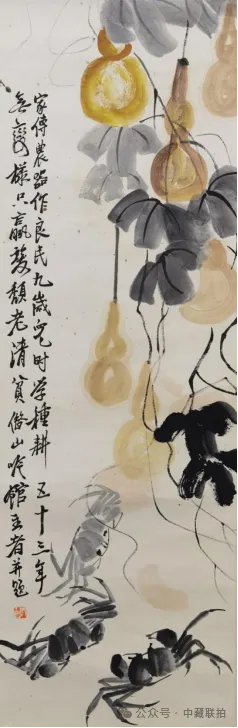 家傳農器作良民九歲兒時學種耕 五十三年
樣只贏老清貧借山吟館主者并題
公众号 · 中藏联拍